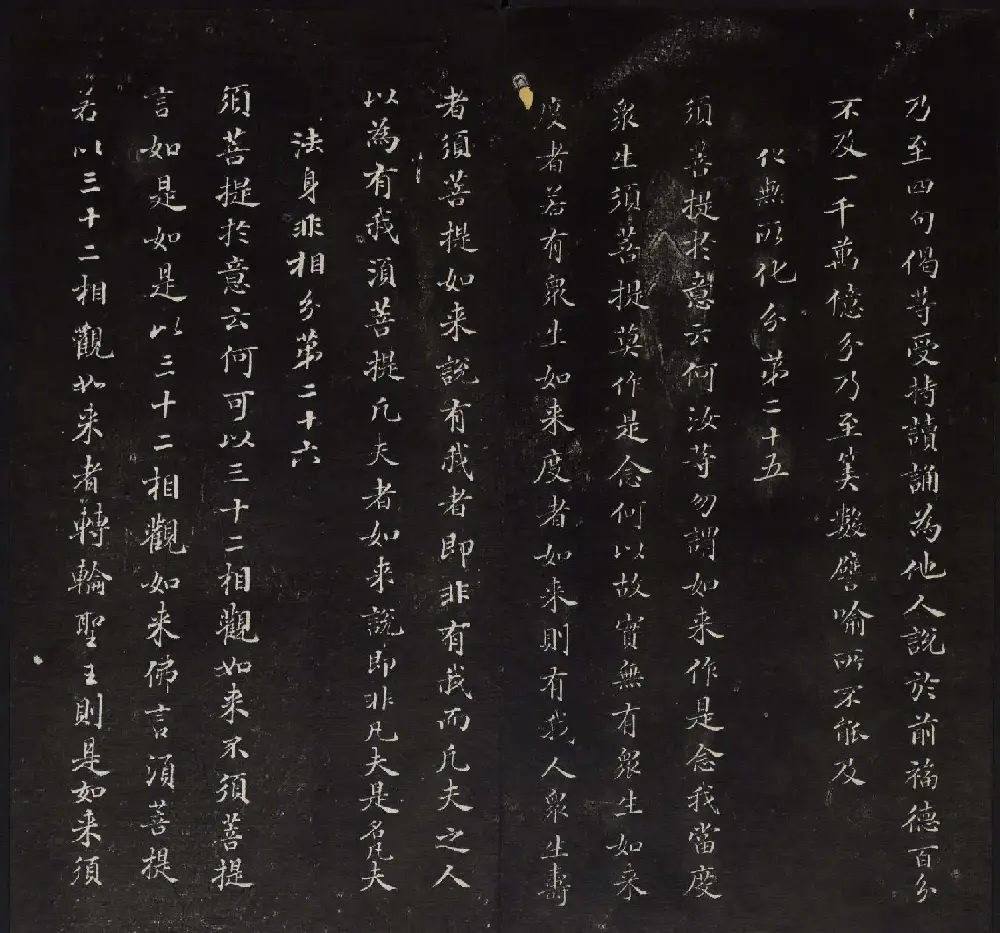 乃至四句偈等受持讀誦為他人說於前福德百分
不及一千萬億分乃至筭數譬喻所不能及
化無所化分第二十五
須菩提於意云何汝等勿謂如来作是念我當度
衆生須菩提莫作是念何以故實無有衆生如来
度者若有衆生如来度者如来則有我人衆生壽
者須菩提如来說有我者即非有我而凡夫之人
以為有我須菩提凡夫者如来說即非凡夫是名凡夫
法身非相分第二十六
須菩提於意云何可以三十二相觀如来不須菩提
言如是如是以三十二相觀如来佛言須菩提
若以三十二相觀如来者轉輪聖王則是如来須